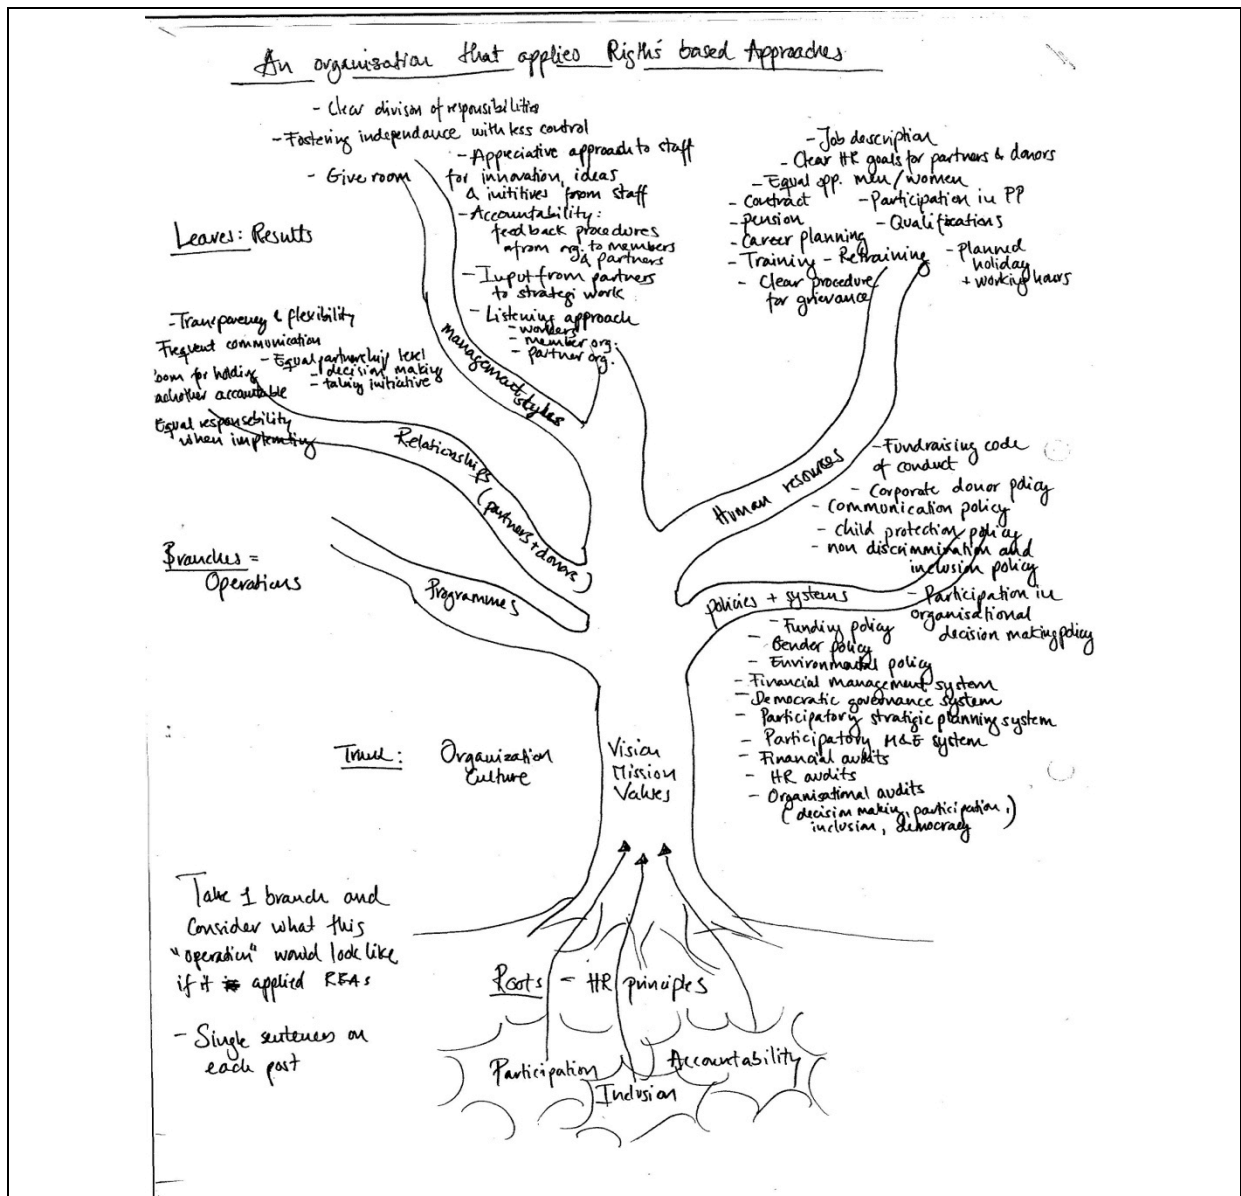 An organisation that applies Rigths based Approaches
- Clear divison of responsibilities
- Fostering independance with less control
- Give room for innovation, ideas
& inititives from staff
- Appreciative approach to staff
- Accountability:
feedback procedures
from org. to members
& partners
- Input from partners
to strategi work
- Listening approach
- workers
- member org.
- partner org.
management styles
- Job description
- Clear HR goals for partners & donors
- Equal opp. men/women
- Contract
- Participation in PP
- pension
- Qualifications
- Career planning
- Training - Retraining
- Planned
holiday
+ working hours
- Clear procedure
for grievance
Human resources
Leaves: Results
- Transparency & flexibility
Frequent communication
- Equal partnership level
- decision making
- taking initiative
room for holding
accountable
Equal responsebility
when implemting
Relationships
(partners + donors)
Branches =
Operations
Programmes
- Fundraising code
of conduct
- Corporate donor policy
- Communication policy
- Child protection policy
- non discrimmination and
inclusion policy
- Participation in
organisational
decision making policy
policies + systems
- Funding policy
- Gender policy
- Environmental policy
- Financial management system
- Democratic governance system
- Participatory stratigic planning system
- Participatory M&E system
- Financial audits
- HR audits
- Organisational audits
(decision making, participation,
inclusion, democracy)
Organization
Culture
Vision
Mission
Values
Take 1 branch and
consider what this
"operation" would look like
if it applied RBAs
- Single sentences on
each post
Roots - HR principles
Participation
Inclusion
Accountability